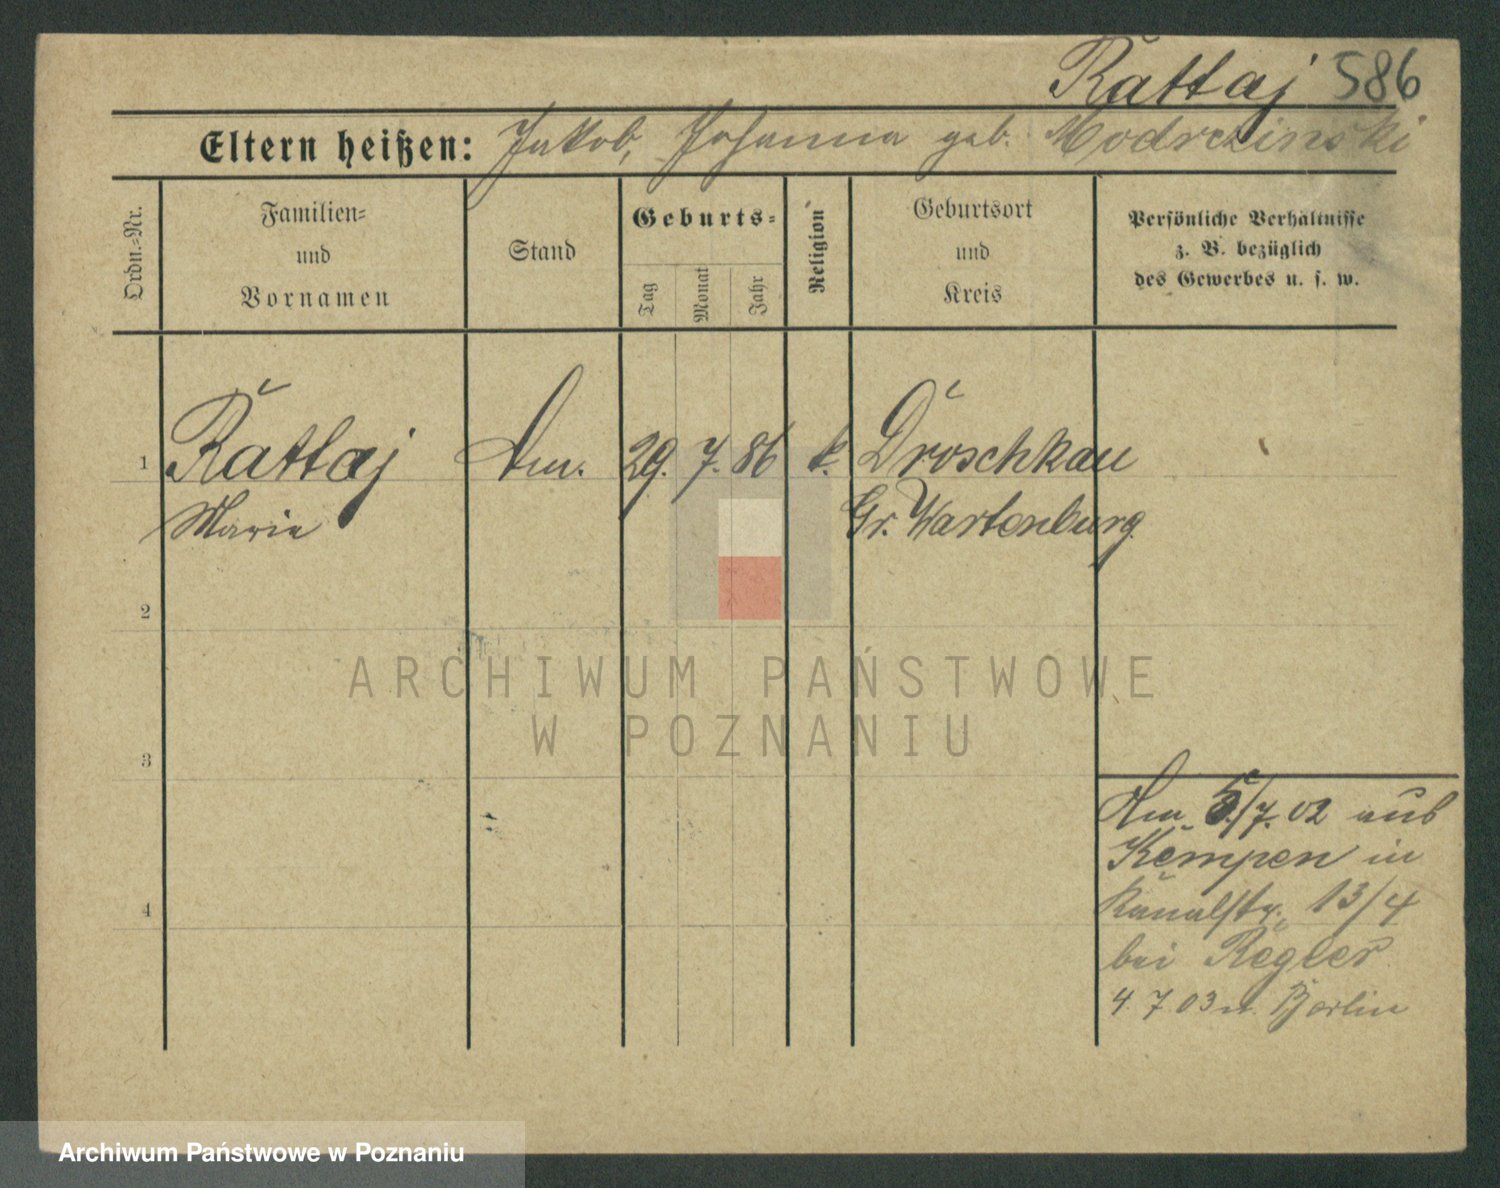 Rattaj 586
Eltern heißen: Jakob, Johanna geb. Modrczinski
Ordn.=Nr.
Familien=
und
Vornamen
Stand
Geburts=
Tag
Monat
Jahr
Religion
Geburtsort
und
Kreis
Persönliche Verhältnisse
z. B. bezüglich
des Gewerbes u. s. w.
1 Rattaj 29. 7. 86 k. Droschkau
Marie Gr. Wartenburg
2
3
4
5/7. 02 aus
Kempen in
Kanalstr. 13/4
bei Regler
4. 7 03 n. Berlin
ARCHIWUM PAŃSTWOWE
W POZNANIU
Archiwum Państwowe w Poznaniu